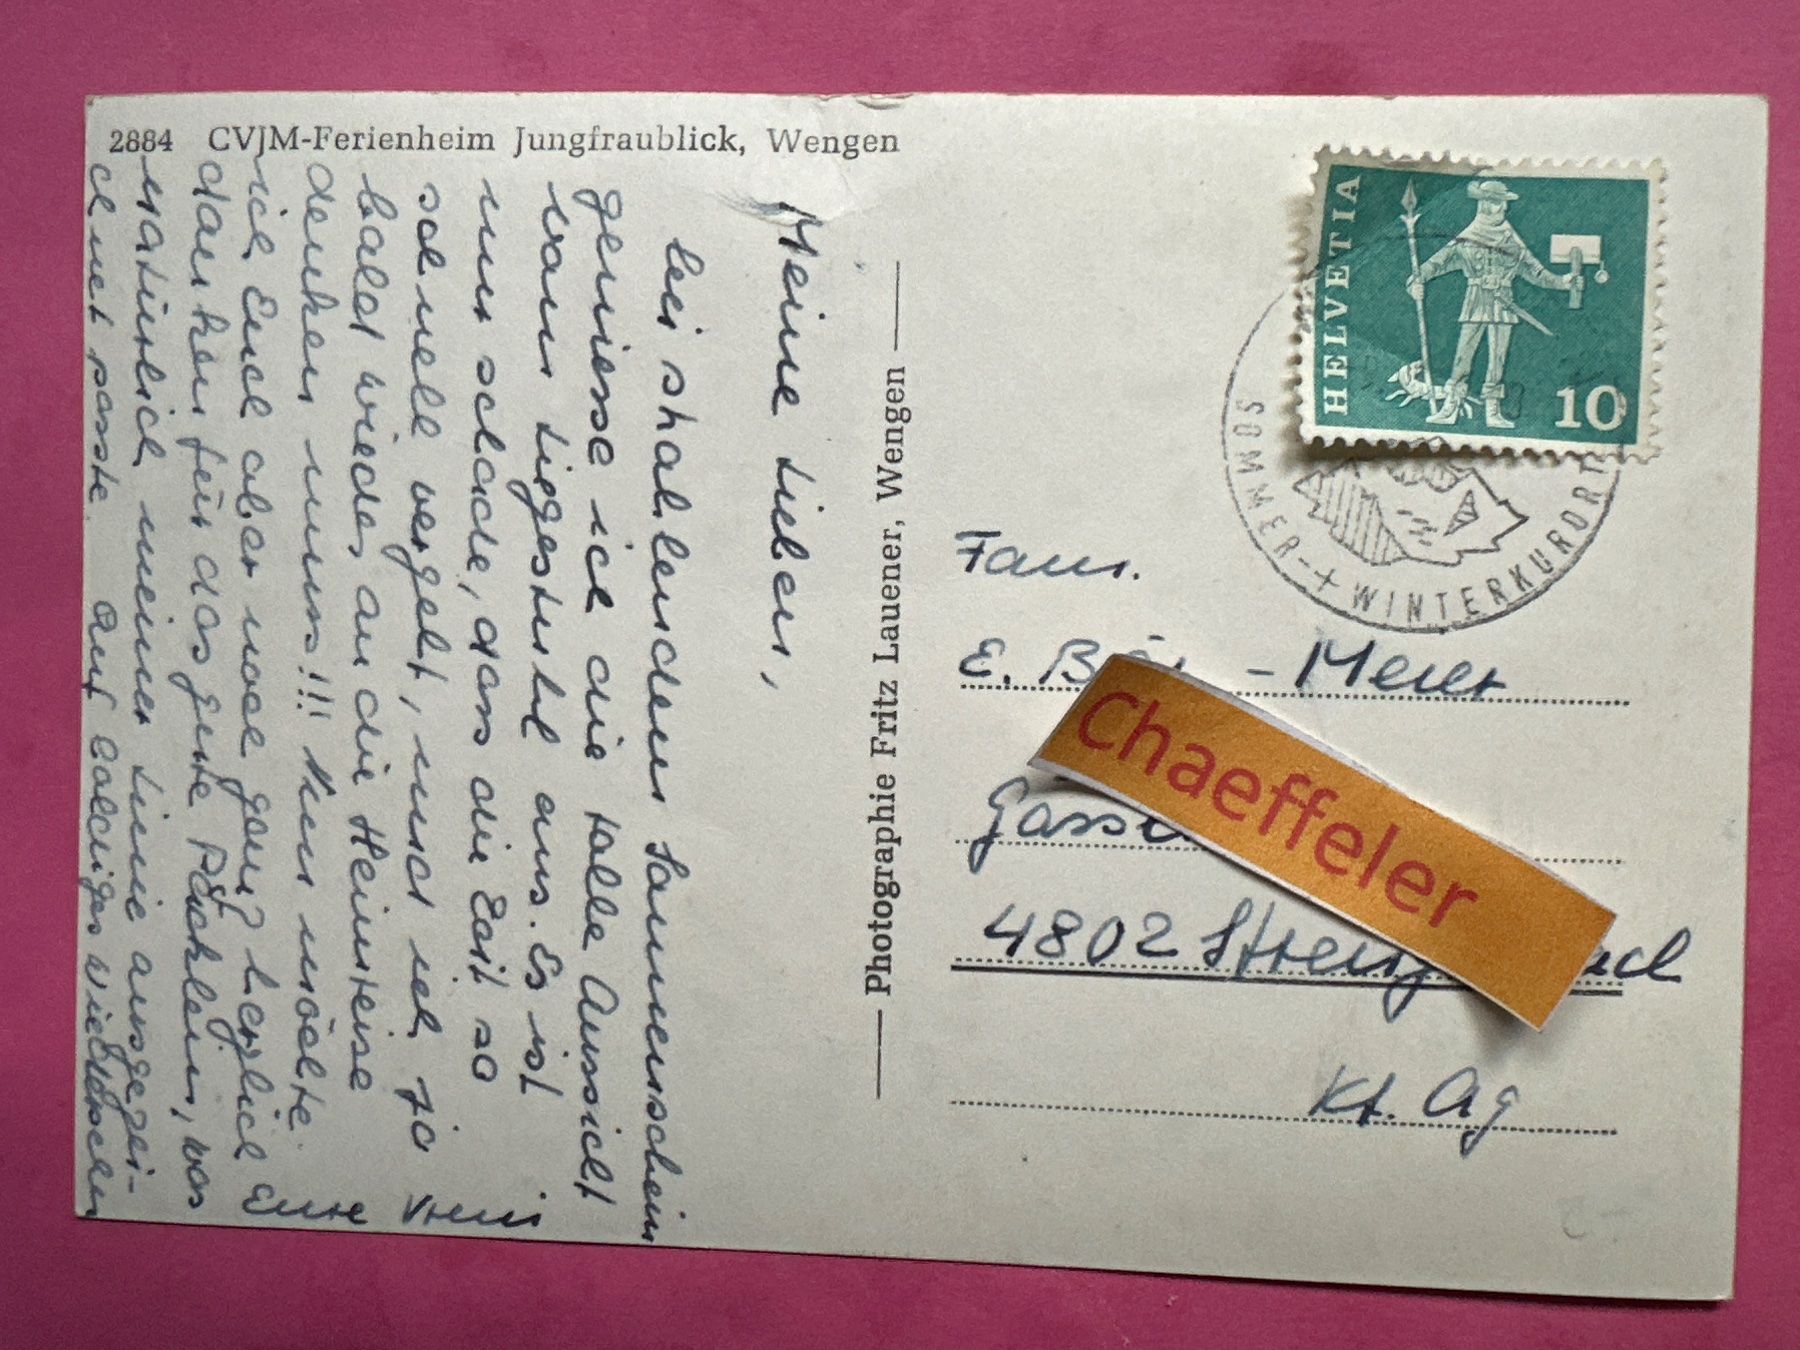 2884 CVJM-Ferienheim Jungfraublick, Wengen
Meine Lieben,
bei strahlendem Sonnenschein
geniesse ich die tolle Aussicht
vom Liegestuhl aus. Es ist
nur schade, dass die Zeit so
schnell vergeht, und ich ja
bald wieder an die Heimreise
denken muss!!! Nun möchte
ich Euch aber noch ganz herzlich
danken für das gute Päcklein, was
natürlich meiner Linie ausgezei-
chnet passte. Auf baldiges Wiedersehen
Eure Vreni
Photographie Fritz Lauener, Wengen
HELVETIA
10
SOMMER- + WINTERKURORT
Fam.
E. - Meier
Chaeffeler
4802
Kt. Ag